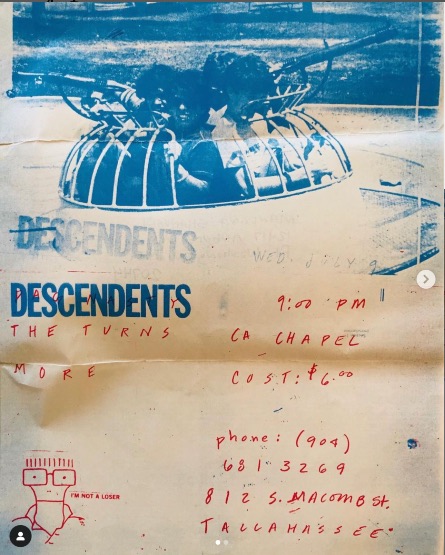 DESCENDENTS
WED. JULY 9
DESCENDENTS
9:00 PM
THE TURNS
CA CHAPEL
MORE
COST: $6.00
phone: (904)
681 3269
I'M NOT A LOSER
812 S. MACOMB St.
TALLAHASSEE